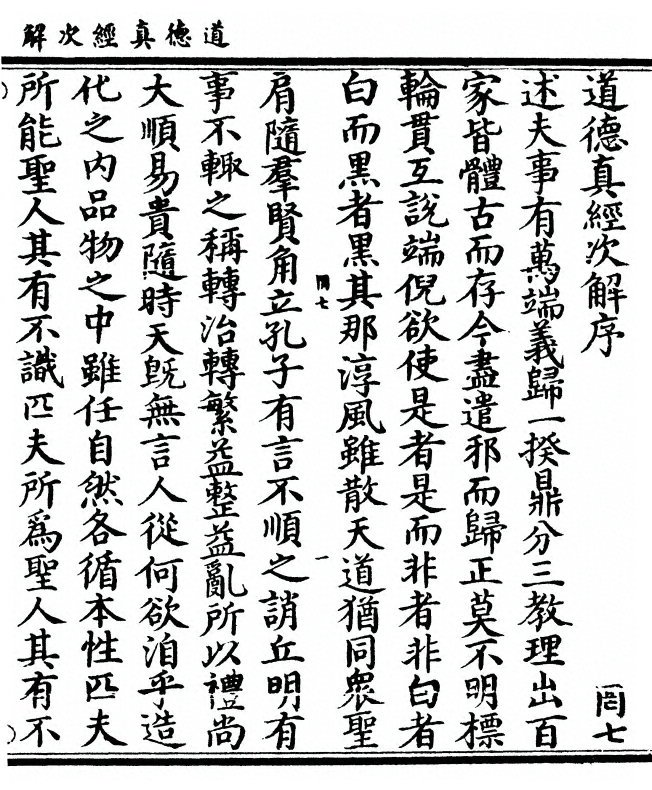 道德真經次解
道德真經次解序 罔七
述夫事有萬端義歸一揆鼎分三教理出百
家皆體古而存今盡遣邪而歸正莫不明標
輪貫互說端倪欲使是者是而非者非白者
白而黑者黑其那淳風雖散天道猶同衆聖
罔七 一
肩隨羣賢角立孔子有言不順之誚丘明有
事不輙之稱轉治轉繁益整益亂所以禮尚
大順易貴隨時天旣無言人從何欲洎乎造
化之內品物之中雖任自然各循本性匹夫
所能聖人其有不識匹夫所爲聖人其有不